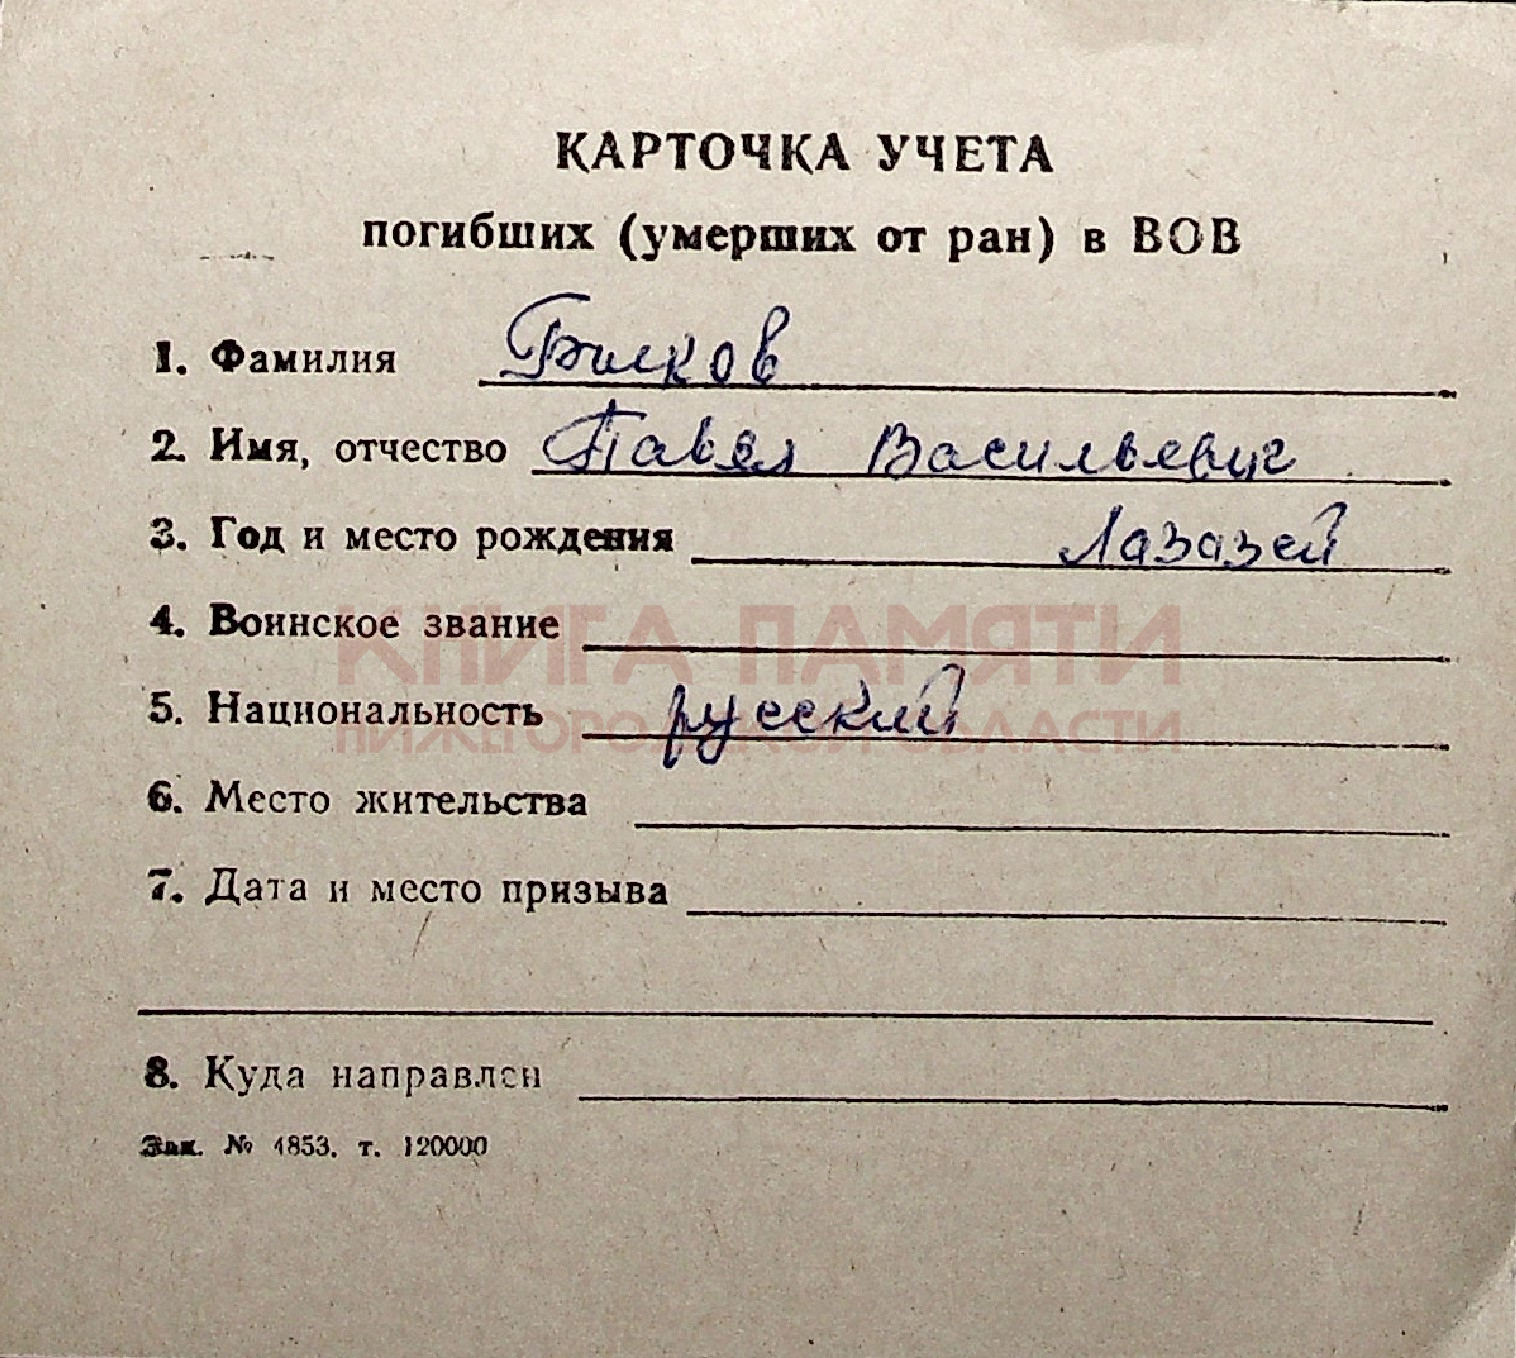 КАРТОЧКА УЧЕТА
погибших (умерших от ран) в ВОВ
1. Фамилия
2. Имя, отчество Павел Васильевич
3. Год и место рождения Лазазей
4. Воинское звание
КНИГА ПАМЯТИ
5. Национальность русский
НИЖЕГОРОДСКОЙ ОБЛАСТИ
6. Место жительства
7. Дата и место призыва
8. Куда направлен
Зак. № 1853. т. 120000